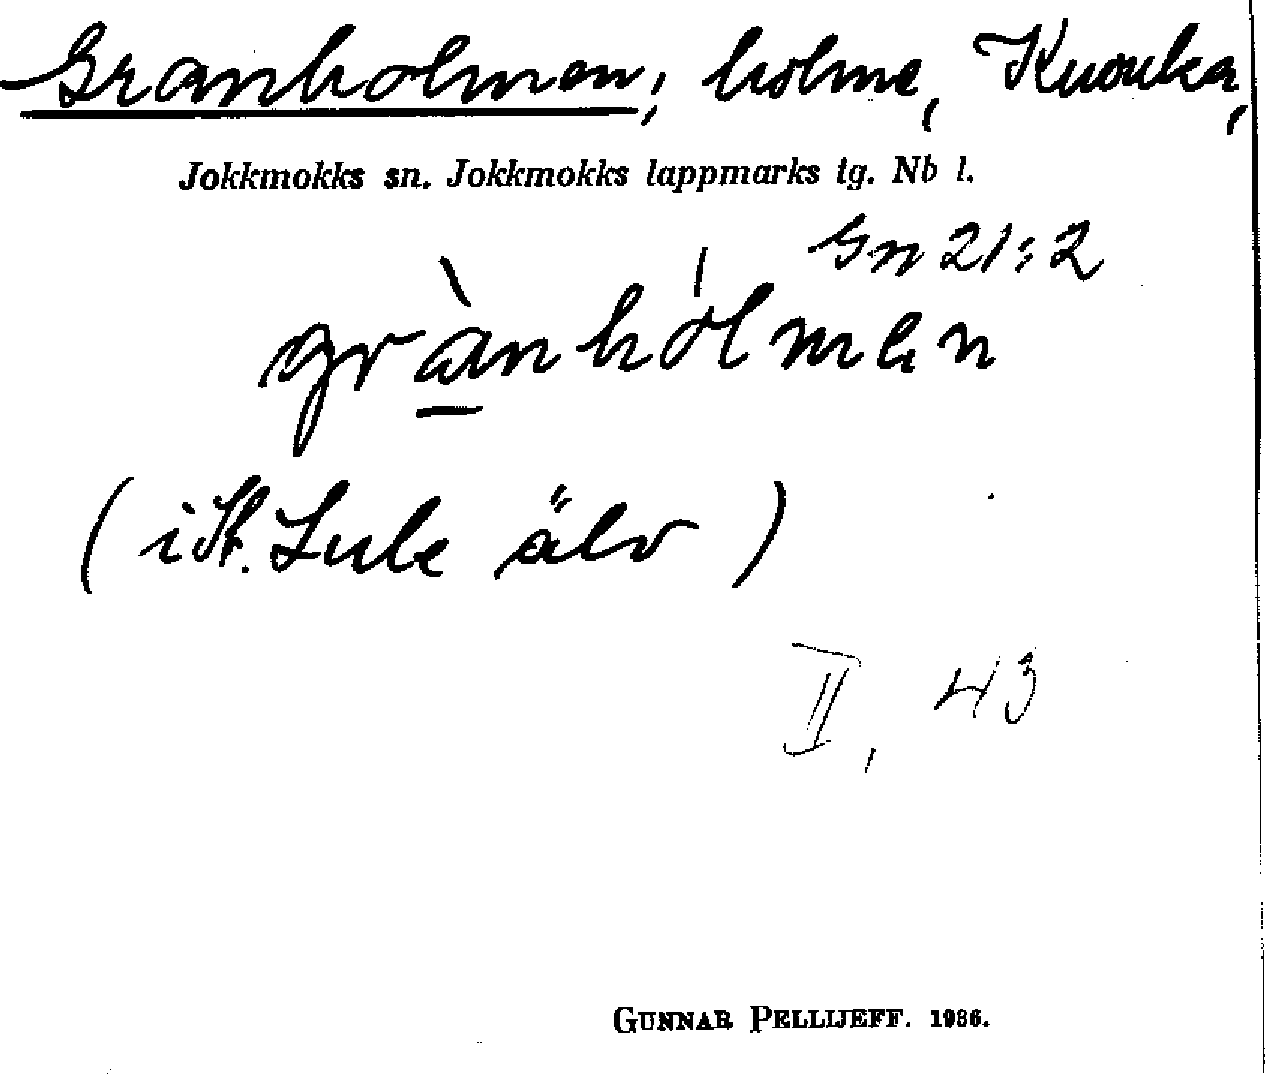 Granholmen, holme, Knouka,
Jokkmokks sn. Jokkmokks lappmarks tg. Nb l.
Gn 21:2
grànhólmen
(i St. Lule älv)
II, 43
GUNNAR PELLIJEFF. 1986.